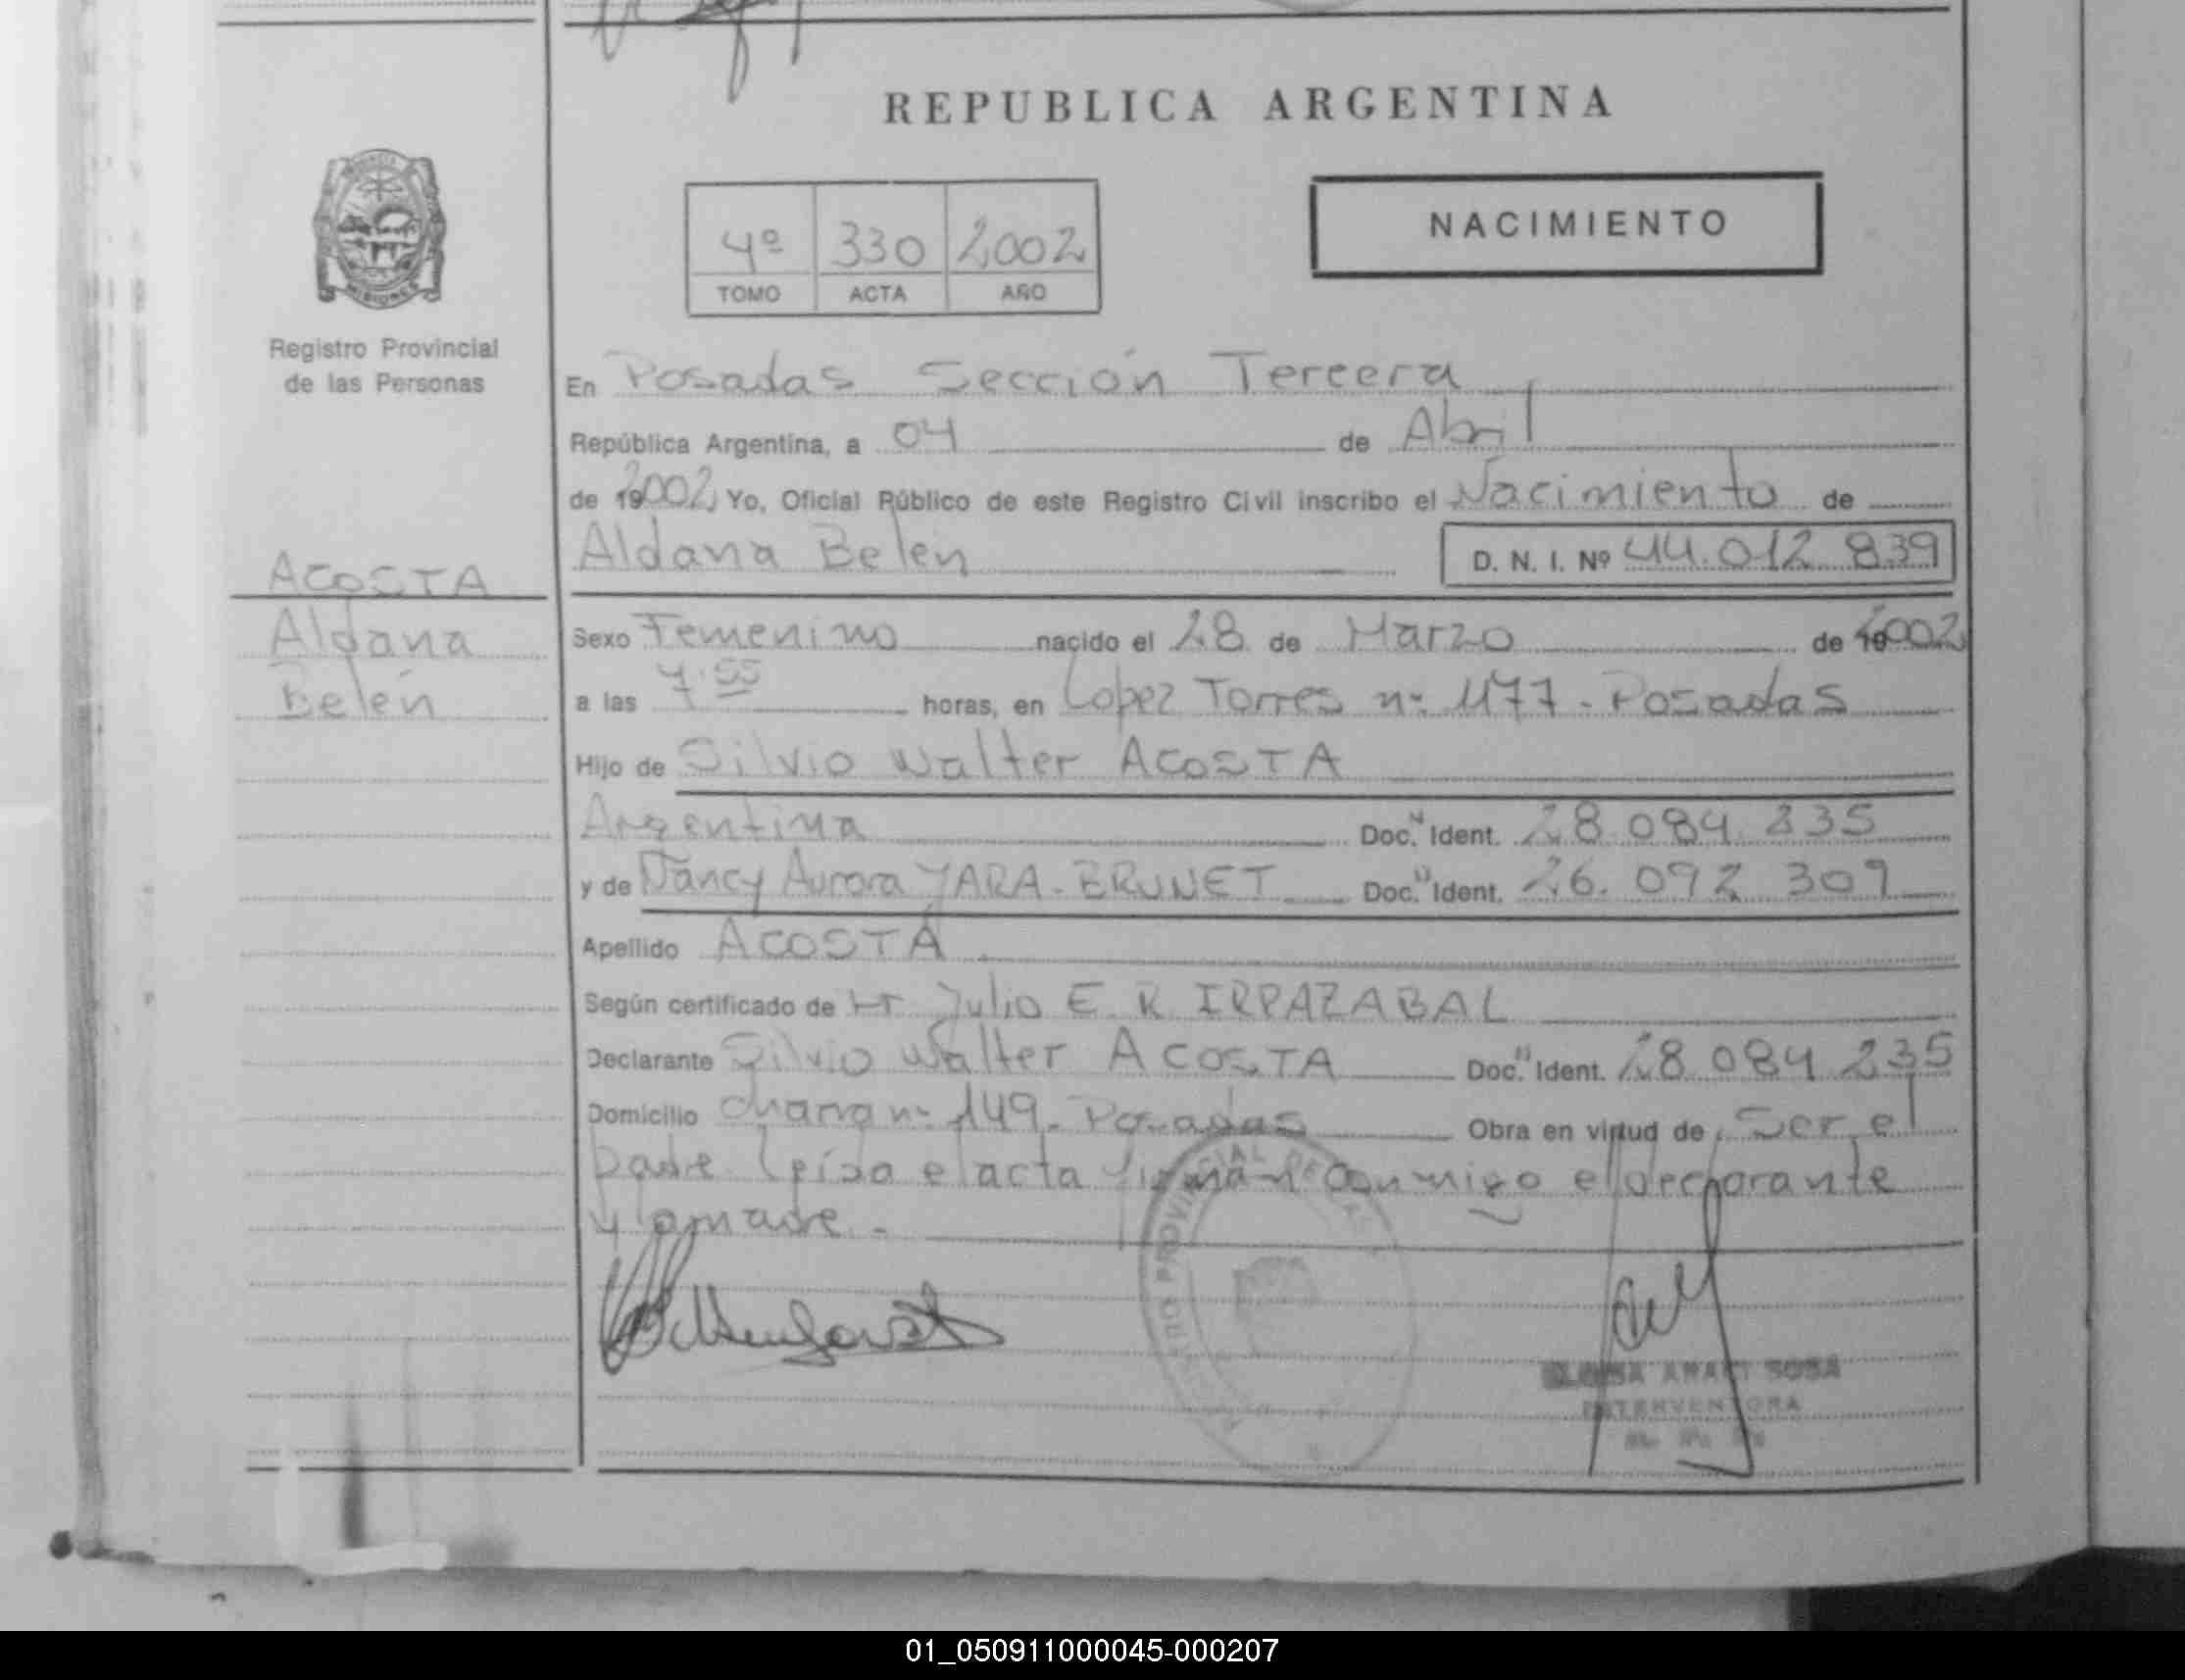 REPUBLICA ARGENTINA
NACIMIENTO
4º 330 2002
TOMO ACTA AÑO
MISIONES
Registro Provincial
de las Personas
En Posadas Sección Tercera
República Argentina, a 04 de Abril
de 192002 Yo, Oficial Público de este Registro Civil inscribo el Nacimiento de
Aldana Belen D. N. I. Nº 44.012 839
ACOSTA
Aldana
Belén
Sexo Femenino nacido el 28 de Marzo de 2002
a las 7.55 horas, en Lopez Torres nº 1177 - Posadas
Hijo de Silvio Walter ACOSTA
Argentina Doc. Ident. 28.084.235
y de Nancy Aurora YARA - BRUNET Doc. Ident. 26.092 309
Apellido ACOSTA
Según certificado de Julio E. R. IRPAZABAL
Declarante Silvio Walter ACOSTA Doc. Ident. 28 084 235
Domicilio chacra nº 149 - Posadas Obra en virtud de Ser el
padre Leída el acta firman conmigo el declarante
y la madre -
SOSA
INTERVENTORA
01_050911000045-000207